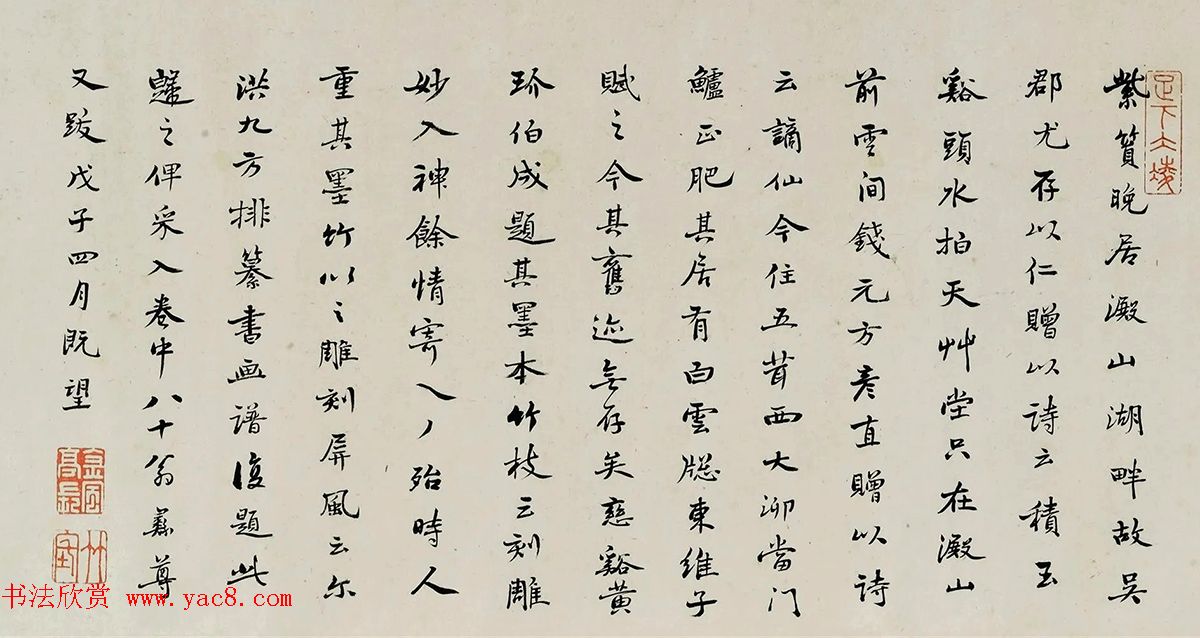 紫篔晚居澱山湖畔故吴
郡尤存以仁贈以诗云積玉
谿頭水拍天艸堂只在澱山
前雲间錢元方彦直贈以诗
云謫仙今住五茸西大泖當门
鱸正肥其居有白雲牕東维子
赋之今其舊迹無存矣慈谿黄
玠伯成題其墨本竹枝云刻雕
妙入神餘情寄入殆時人
重其墨竹以之雕刻屏風云尔
洪九方排纂書画谱復題此
之俾采入卷中八十翁彝尊
又跋戊子四月既望
书法欣赏 www.yac8.com